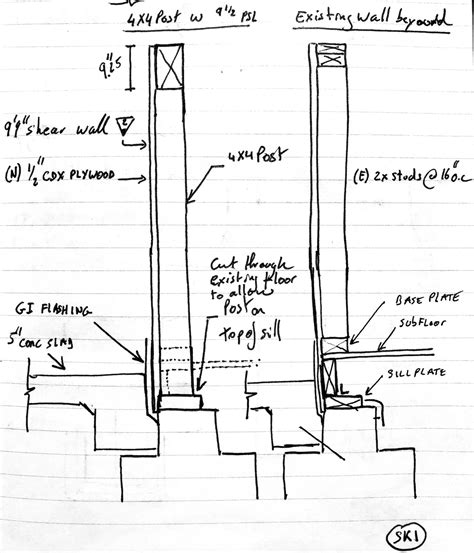 4x4 Post w 9 1/2 PSL
Existing Wall beyound
9'1" shear wall
2
(N) 1/2" CDX PLYWOOD
4x4 Post
(E) 2x studs @ 16" o.c
Cut through
existing floor
to allow
Post on
top of sill
GI FLASHING
5" CONC SLAB
BASE PLATE
SUBFLOOR
SILL PLATE
SK1